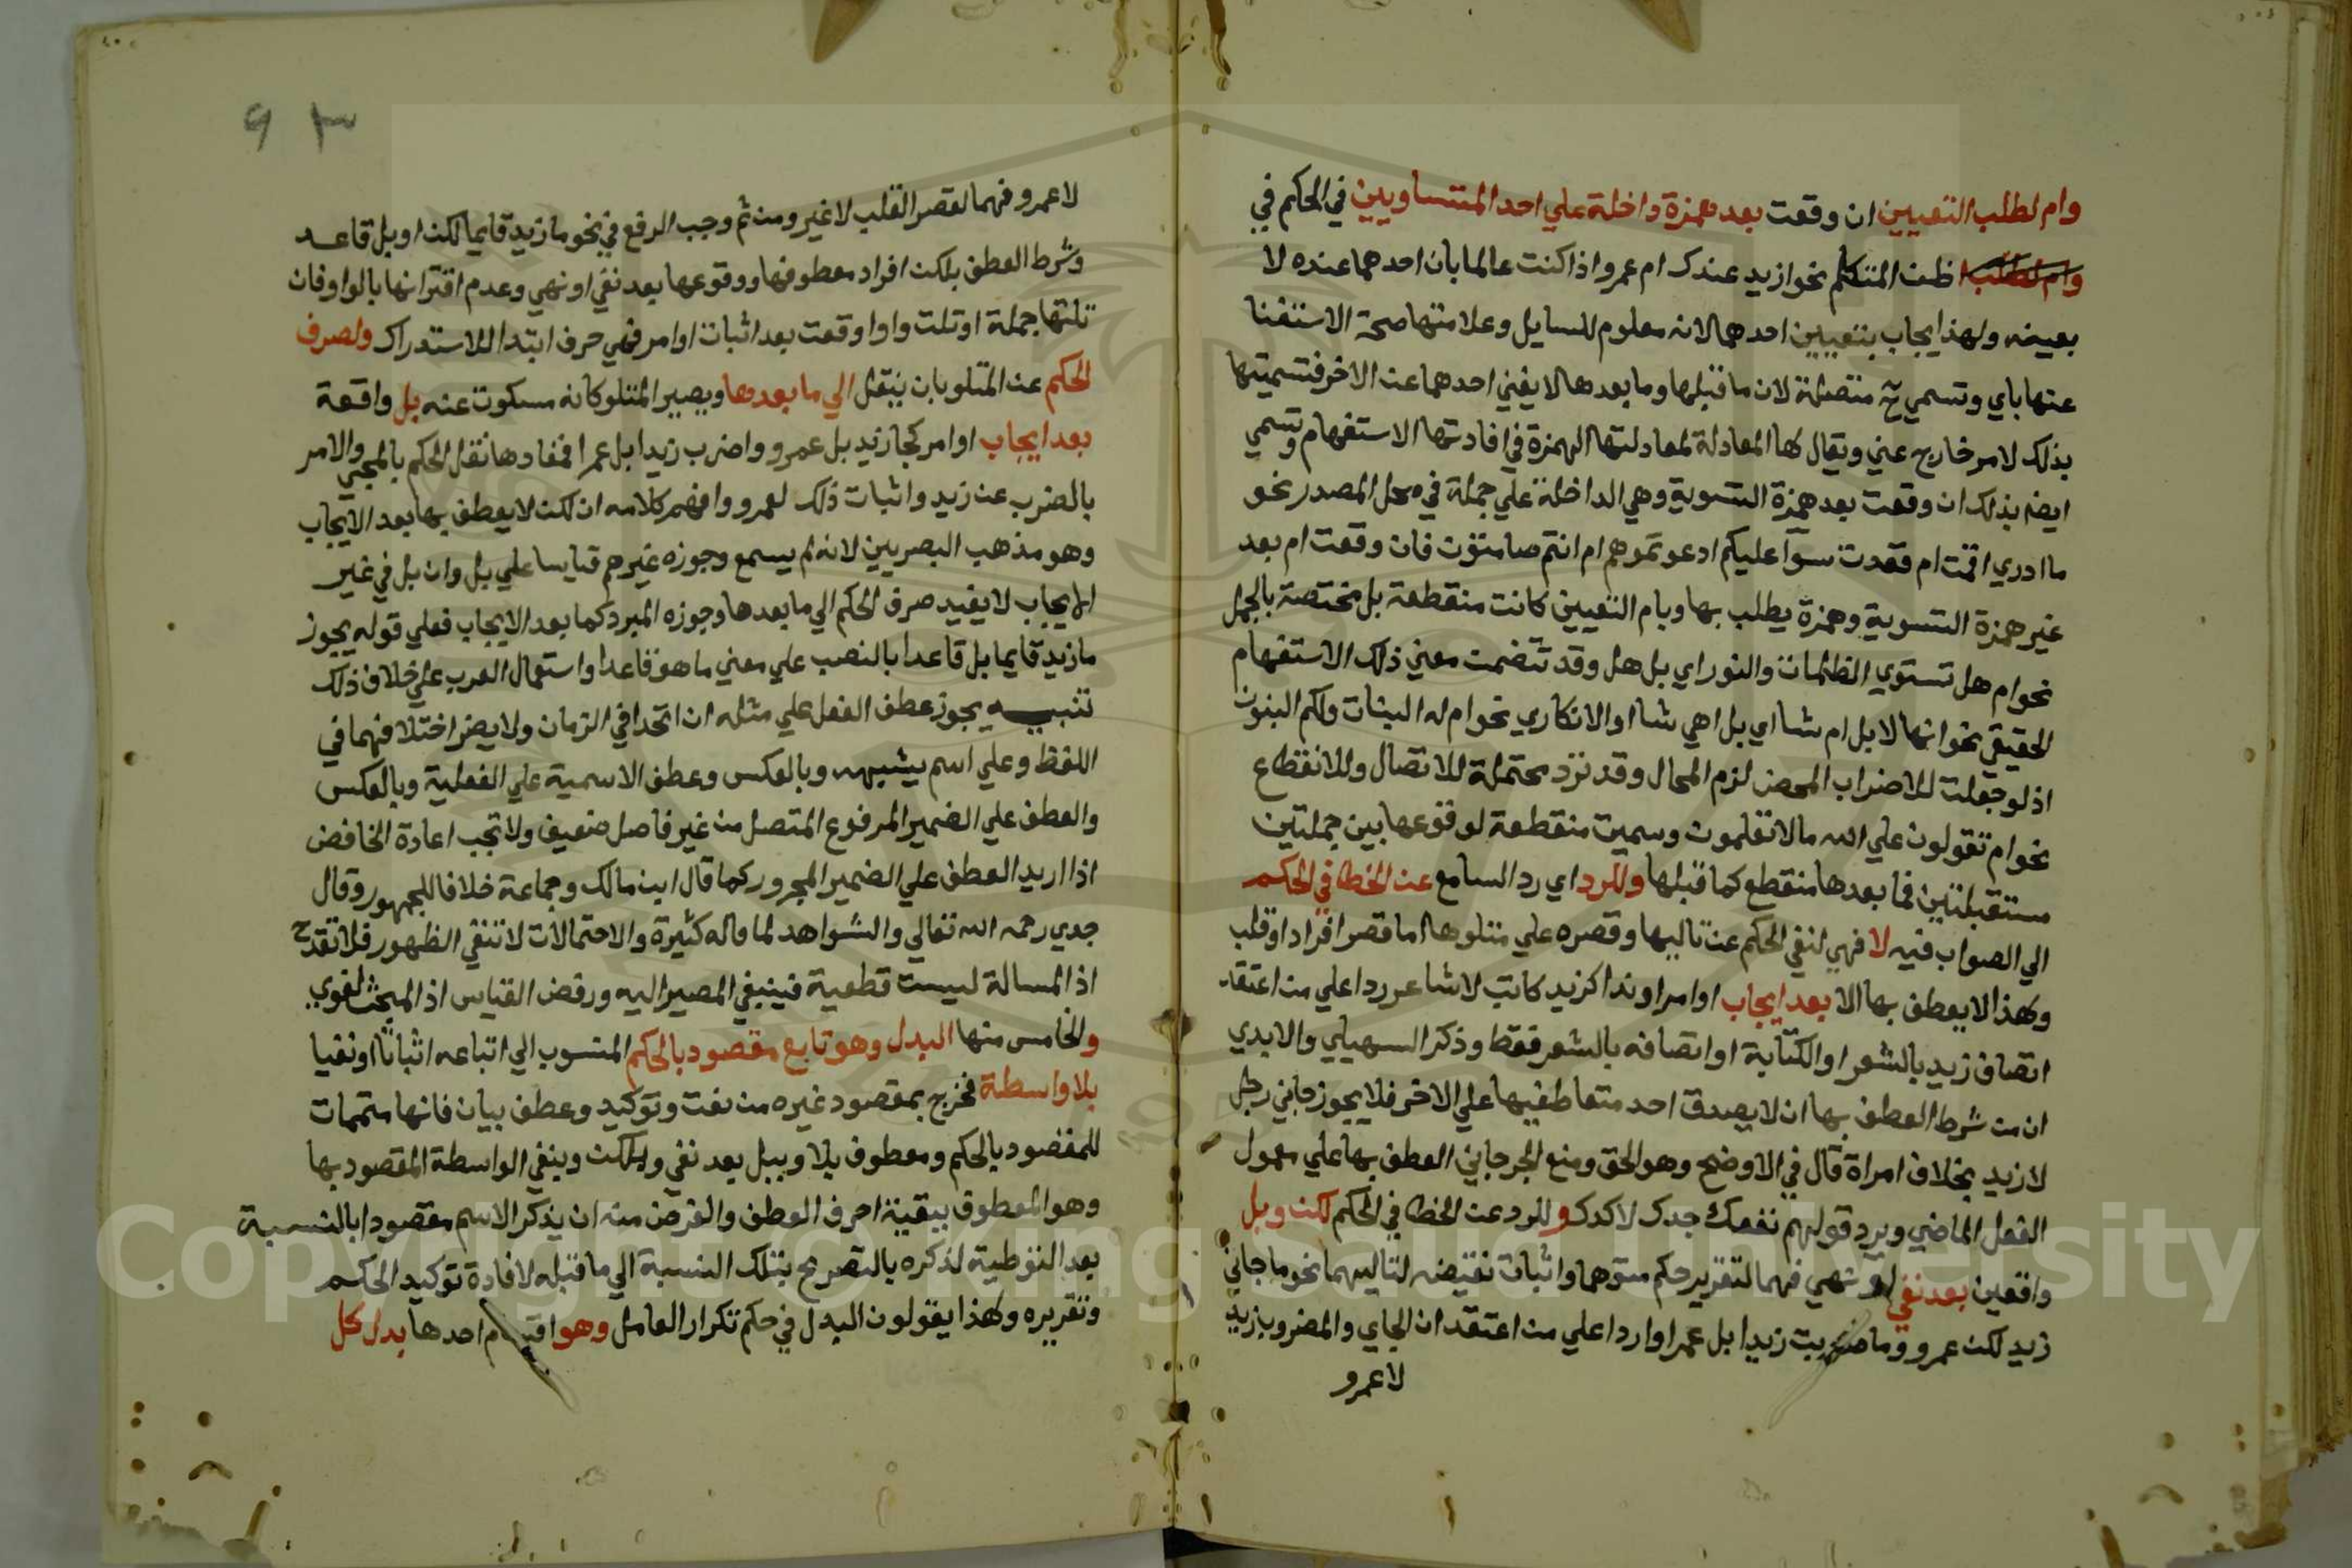 وام لطلب التعيين ان وقعت بعد همزة داخلة علي احد المتساويين في الحكم في
وام لطلب ظن المتكلم نحو ازيد عندك ام عمرو اذا كنت عالما بان احدهما عنده لا
بعينه ولهذا يجاب بتعيين احدهما لانه معلوم للسايل وعلامتها صحة الاستغنا
عنها باي وتسمي ح متصلة لان ما قبلها وما بعدها لا يغني احدهما عن الاخر فتسميتها
بذلك لامر خارج عني ويقال لها المعادلة لمعادلتها الهمزة في افادتها الاستفهام وتسمي
ايضا بذلك ان وقعت بعد همزة التسوية وهي الداخلة علي جملة في محل المصدر نحو
ما ادري اقمت ام قعدت سوآ عليكم ادعوتموهم ام انتم صامتون فان وقعت ام بعد
غير همزة التسوية وهمزة يطلب بها وبام التعيين كانت منقطعة بل مختصة بالجمل
نحو ام هل تستوي الظلمات والنور اي بل هل وقد تتضمن معني ذلك الاستفهام
الحقيقي نحو انها لابل ام شا اي بل اهي شا او الانكاري نحو ام له البنات ولكم البنون
اذ لو جعلت للاضراب المحض لزم المحال وقد ترد محتملة للاتصال وللانقطاع
نحو ام تقولون علي الله ما لا تعلمون وسميت منقطعة لوقوعها بين جملتين
مستقبلتين فما بعدها منقطع كما قبلها وللرد اي رد السامع عن الخطا في الحكم
الي الصواب فيه لا فهي لنفي الحكم عن تاليها وقصره علي متلوها اما قصر افراد او قلب
ولهذا لا يعطف بها الا بعد ايجاب او امر او ندا كزيد كاتب لا شاعر ردا علي من اعتقد
اتصاف زيد بالشعر او الكتابة او اتصافه بالشعر فقط وذكر السهيلي والابدي
ان من شرط العطف بها ان لا يصدق احد متعاطفيها علي الاخر فلا يجوز جاني رجل
لا زيد بخلاف امراة قال في الاوضح وهو الحق ومنع الجرجاني العطف بها علي معمول
الفعل الماضي ويرد قولهم نفعك جدك لا كدك وللرد عن الخطا في الحكم لكن وبل
واقعين بعد نفي او نهي فهما لتقرير حكم متلوهما واثبات نقيضه لتاليهما نحو ما جاني
زيد لكن عمرو وما ضربت زيدا بل عمرا وردا علي من اعتقد ان الجاي والمضروب زيد
لا عمرو
٩٣
لا عمرو فهما لقصر القلب لا غير ومن ثم وجب الرفع في نحو ما زيد قايما لكن او بل قاعد
وشرط العطف بلكن افراد معطوفها ووقوعها بعد نفي او نهي وعدم اقترانها بالواو فان
تلتها جملة او تلت واوا وقعت بعد اثبات او امر فهي حرف ابتدا للاستدراك ولصرف
الحكم عن المتلو بان ينقل الي ما بعدها ويصير المتلو كانه مسكوت عنه بل واقعة
بعد ايجاب او امر كجا زيد بل عمرو واضرب زيدا بل عمرا فمفادها نقل الحكم بالمجي والامر
بالضرب عن زيد واثبات ذلك لعمرو وافهم كلامه ان لكن لا يعطف بها بعد الايجاب
وهو مذهب البصريين لانه لم يسمع وجوزه غيرهم قياسا علي بل وان بل في غير
الايجاب لا يفيد صرف الحكم الي ما بعدها وجوزه المبرد كما بعد الايجاب فعلي قوله يجوز
ما زيد قايما بل قاعدا بالنصب علي معني ما هو قاعدا واستعمال العرب علي خلاف ذلك
تنبيه يجوز عطف الفعل علي مثله ان اتحدا في الزمان ولا يضر اختلافهما في
اللفظ وعلي اسم يشبهه وبالعكس وعطف الاسمية علي الفعلية وبالعكس
والعطف علي الضمير المرفوع المتصل من غير فاصل ضعيف ولا تجب اعادة الخافض
اذا اريد العطف علي الضمير المجرور كما قال ابن مالك وجماعة خلافا للجمهور وقال
جدي رحمه الله تعالي والشواهد لما قاله كثيرة والاحتمالات لا تنفي الظهور فلا تقدح
اذ المسالة ليست قطعية فينبغي المصير اليه ورفض القياس اذ المبحث لغوي
والخامس منها البدل وهو تابع مقصود بالحكم المنسوب الي اتباعه اثباتا او نفيا
بلا واسطة فخرج بمقصود غيره من نعت وتوكيد وعطف بيان فانها متممات
للمقصود بالحكم ومعطوف بلا وببل بعد نفي وبلكن وبنفي الواسطة المقصود بها
وهو المعطوف ببقية احرف العطف والغرض منه ان يذكر الاسم مقصودا بالنسبة
بعد التوطية لذكره بالتصريح بتلك النسبة الي ما قبله لافادة توكيد الحكم
وتقريره ولهذا يقولون البدل في حكم تكرار العامل وهو اقسام احدها بدل كل
Copyright © King Saud University